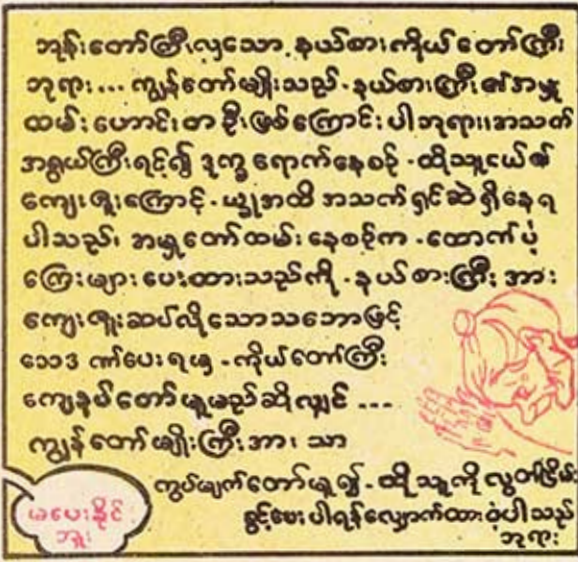 ဘုန်းတော်ကြီးလှသော နယ်စားကိုယ်တော်ကြီး
ဘုရား... ကျွန်တော်မျိုးသည် - နယ်စားကြီး၏အမှု
ထမ်းဟောင်းတဦးဖြစ်ကြောင်းပါဘုရား၊ အသက်
အရွယ်ကြီးရင့်၍ ဒုက္ခရောက်နေစဉ် - ထိုသူငယ်၏
ကျေးဇူးကြောင့် - ယ္ခုအထိ အသက်ရှင်ဆဲရှိနေရ
ပါသည်၊ အမှုတော်ထမ်းနေစဉ်က - ထောက်ပံ့
ကြေးများပေးထားသည်ကို - နယ်စားကြီးအား
ကျေးဇူးဆပ်လိုသောသဘောဖြင့်
သေဒဏ်ပေးရမှ - ကိုယ်တော်ကြီး
ကျေနပ်တော်မူမည်ဆိုလျှင် ...
ကျွန်တော်မျိုးကြီးအား သာ
ကွပ်မျက်တော်မူ၍ - ထိုသူကိုလွတ်ငြိမ်း
ခွင့်ပေးပါရန်လျှောက်ထားဝံ့ပါသည်
ဘုရား
မပေးနိုင်
ဘူး